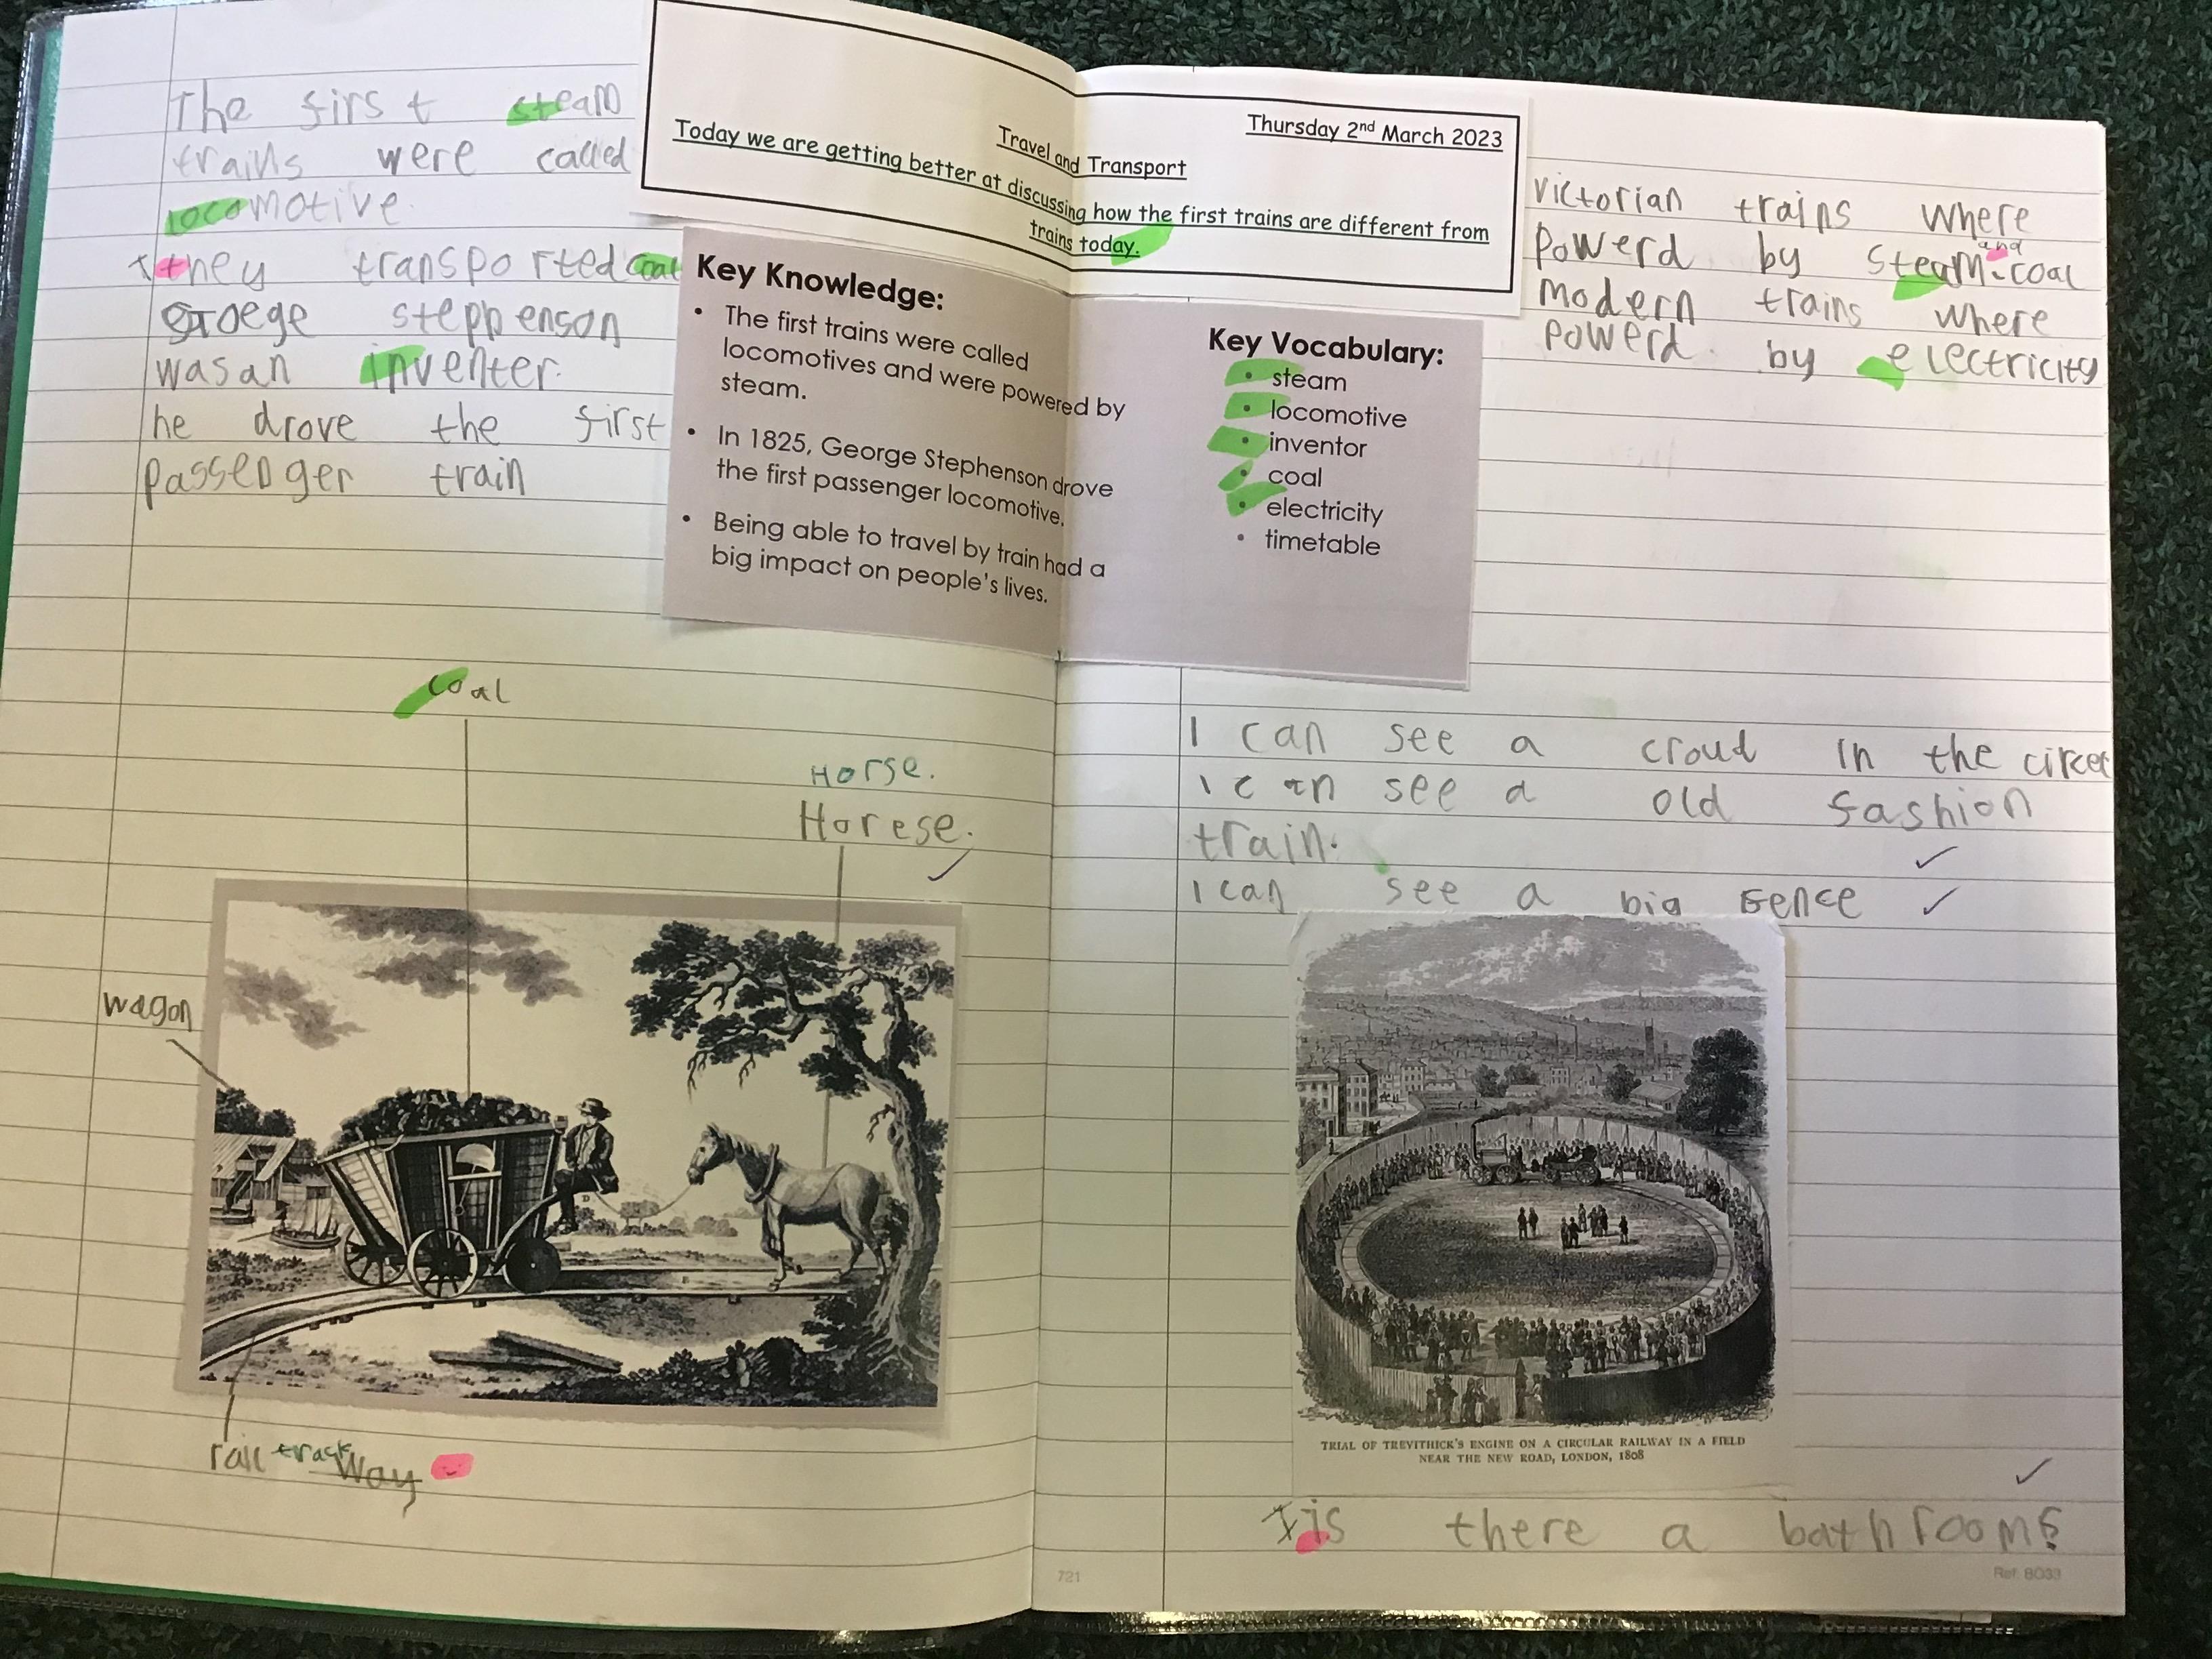 Thursday 2nd March 2023
Travel and Transport
Today we are getting better at discussing how the first trains are different from
trains today.
The first steam
trains were called
locomotive.
they transported coal
Groege steppenson
was an inventer.
he drove the first
passenger train
Key Knowledge:
• The first trains were called
locomotives and were powered by
steam.
• In 1825, George Stephenson drove
the first passenger locomotive.
• Being able to travel by train had a
big impact on people's lives.
Key Vocabulary:
• steam
• locomotive
• inventor
• coal
• electricity
• timetable
victorian trains where
and
powerd by steam coal
modern trains where
powerd by electricity
coal
Horse.
Horese.
wagon
rail track way
I can see a croud in the circel
I can see a old fashion
train.
I can see a big fence
TRIAL OF TREVITHICK'S ENGINE ON A CIRCULAR RAILWAY IN A FIELD
NEAR THE NEW ROAD, LONDON, 1808
Is there a bathroom?
721
Ref: BO33